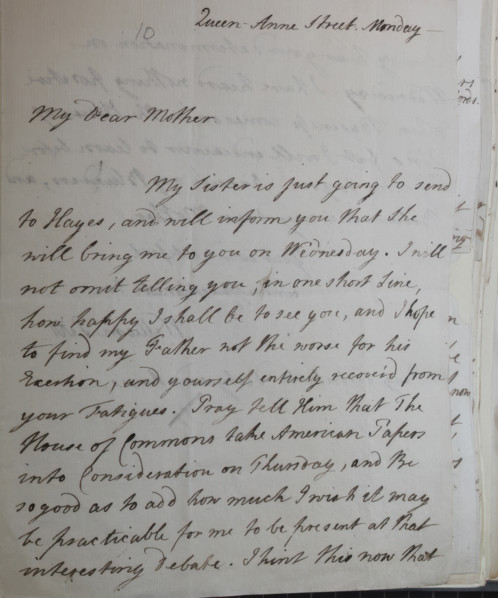 10
Queen-Anne Street. Monday—
My Dear Mother
My Sister is just going to send
to Hayes, and will inform you that she
will bring me to you on Wednesday. I will
not omit telling you, in one short Line,
how happy I shall be to see you, and I hope
to find my Father not the worse for his
Exertion, and yourself entirely recover'd from
your Fatigues. Pray tell Him that The
House of Commons take American Papers
into Consideration on Thursday, and Be
so good as to add how much I wish it may
be practicable for me to be present at that
interesting Debate. I hint this now that